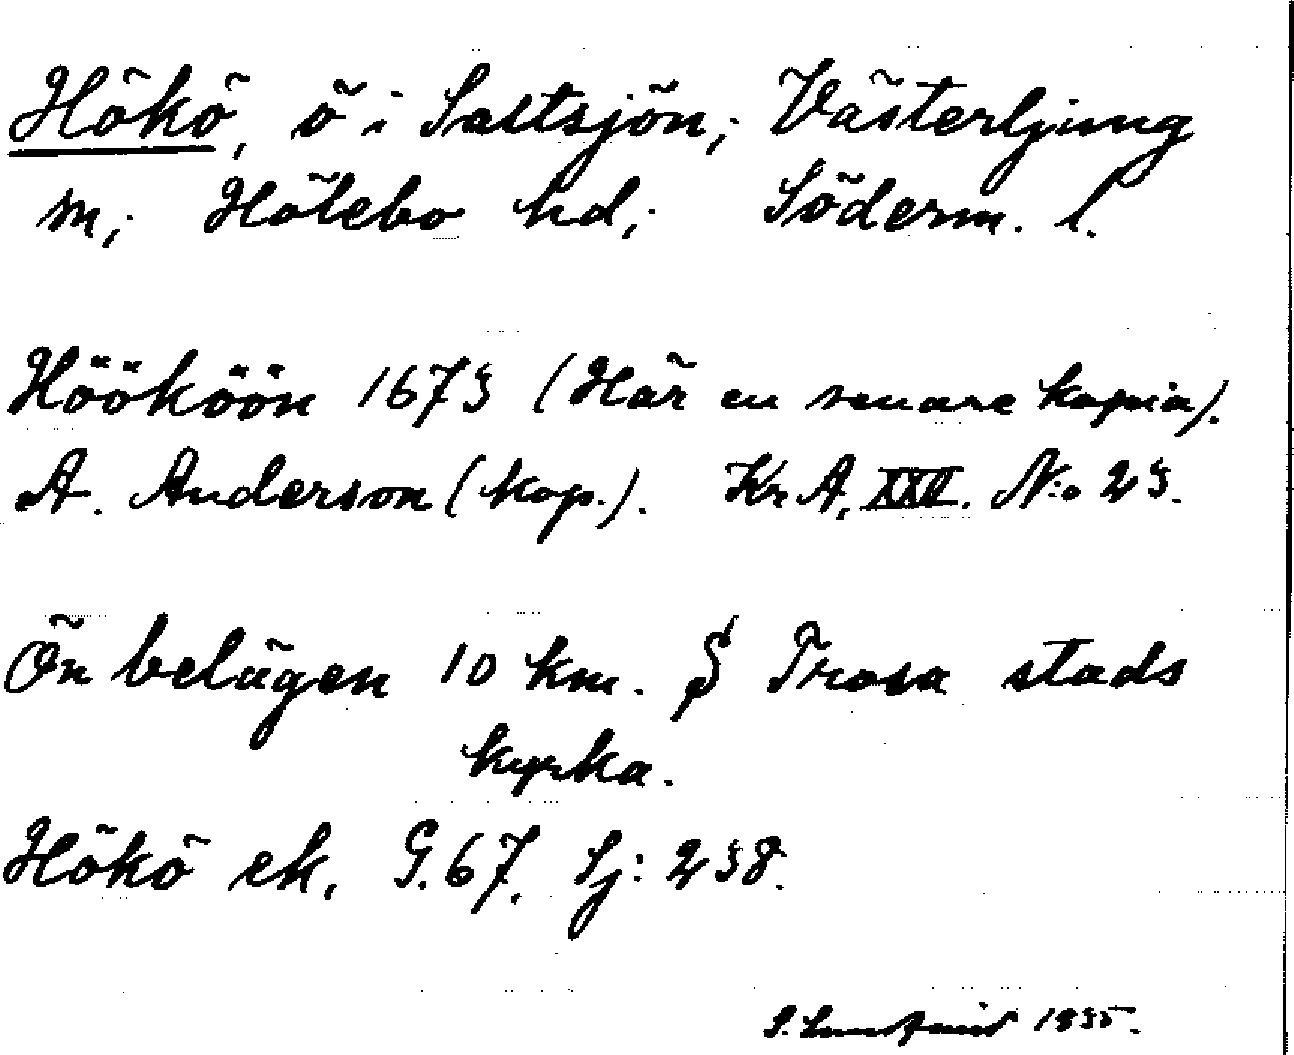 Hökö, ö i Saltsjön, Västerljung
sn, Hölebo hd, Söderm. l.
Höököön 1673 (Här en senare kopia).
A. Anderson (kop.). Kr A, XXII. N:o 23.
Ön belägen 10 km. S Trosa stads
kyrka.
Hökö ek. G. 67. Sj: 238.
S. 1935.